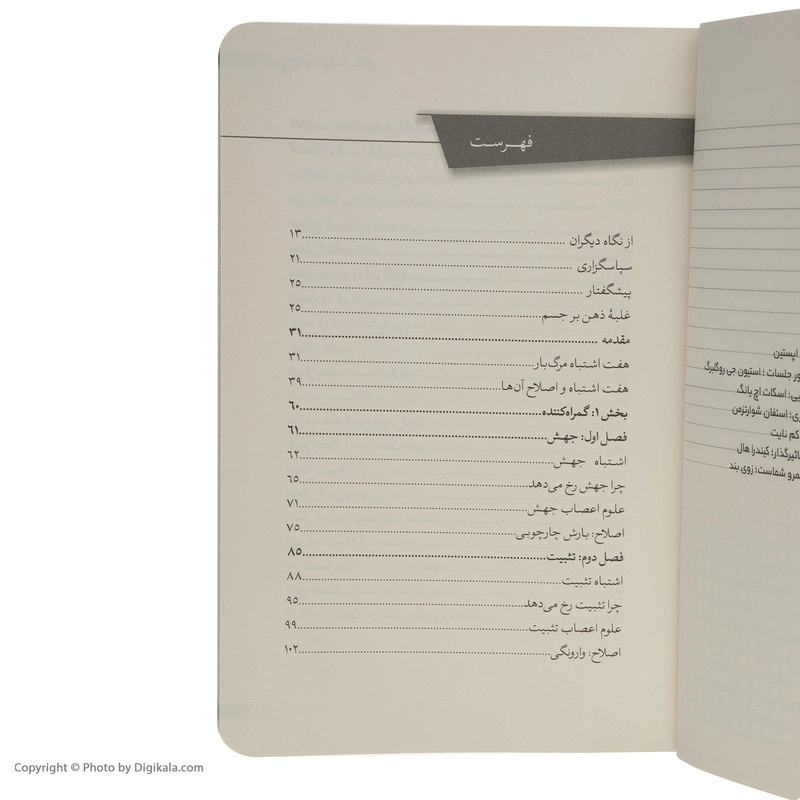 فهرست
از نگاه دیگران ............ ۱۳
سپاسگزاری ............ ۲۱
پیشگفتار ............ ۲۵
غلبهٔ ذهن بر جسم ............ ۲۵
مقدمه ............ ۳۱
هفت اشتباه مرگ‌بار ............ ۳۱
هفت اشتباه و اصلاح آن‌ها ............ ۳۹
بخش ۱: گمراه‌کننده ............ ۶۰
فصل اول: جهش ............ ۶۱
اشتباه جهش ............ ۶۲
چرا جهش رخ می‌دهد ............ ۶۵
علوم اعصاب جهش ............ ۷۱
اصلاح: بارش چارچوبی ............ ۷۵
فصل دوم: تثبیت ............ ۸۵
اشتباه تثبیت ............ ۸۸
چرا تثبیت رخ می‌دهد ............ ۹۵
علوم اعصاب تثبیت ............ ۹۹
اصلاح: وارونگی ............ ۱۰۲
اپستین
ور جلسات؛ استیون جی روگلبرگ
اسکات اچ یانگ
استفان شوارتزمن
کم نایت
تاثیرگذار؛ کیندرا هال
مرو شماست؛ زوی بند
Copyright © Photo by Digikala.com